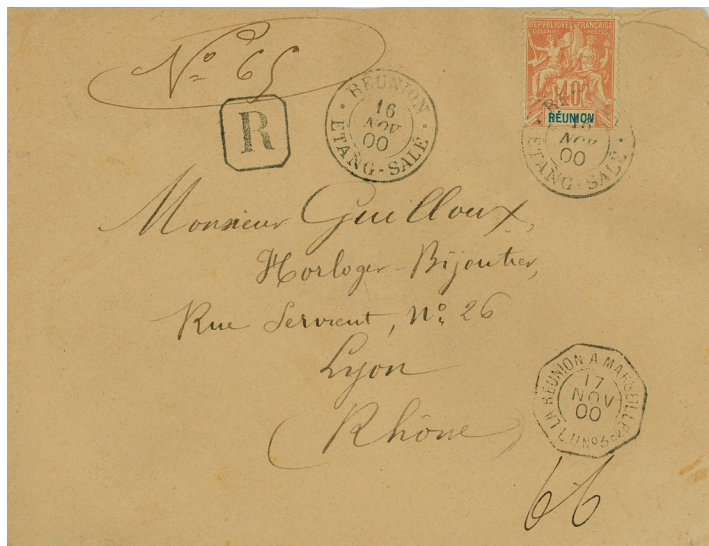 No 65
R
RÉUNION
16
NOV
00
ETANG-SALÉ
RÉPUBLIQUE FRANÇAISE
COLONIES POSTES
40
RÉUNION
NOV
00
ETANG-SALÉ
Monsieur Guilloux,
Horloger-Bijoutier,
Rue Servient, No 26
Lyon
(Rhône)
LA RÉUNION A MARSEILLE
17
NOV
00
66